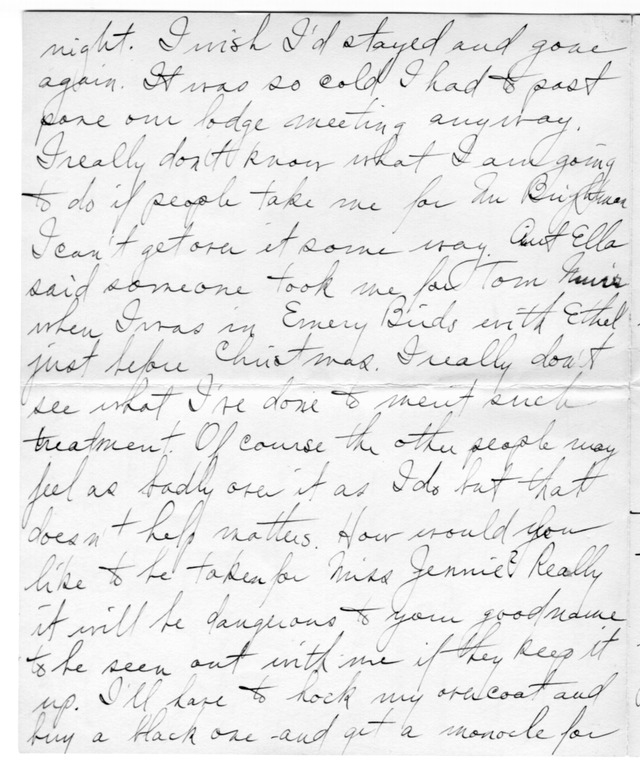 night. I wish I'd stayed and gone
again. It was so cold I had to post
pone our lodge meeting anyway.
I really don't know what I am going
to do if people take me for Mr Brightman
I can't get over it some way. Aunt Ella
said someone took me for Tom
when I was in Emery Birds with Ethel
just before Christmas. I really don't
see what I've done to merit such
treatment. Of course the other people may
feel as badly over it as I do but that
doesn't help matters. How would you
like to be taken for Miss Jennie? Really
it will be dangerous to your good name
to be seen out with me if they keep it
up. I'll have to hock my overcoat and
buy a black one - and get a monocle for